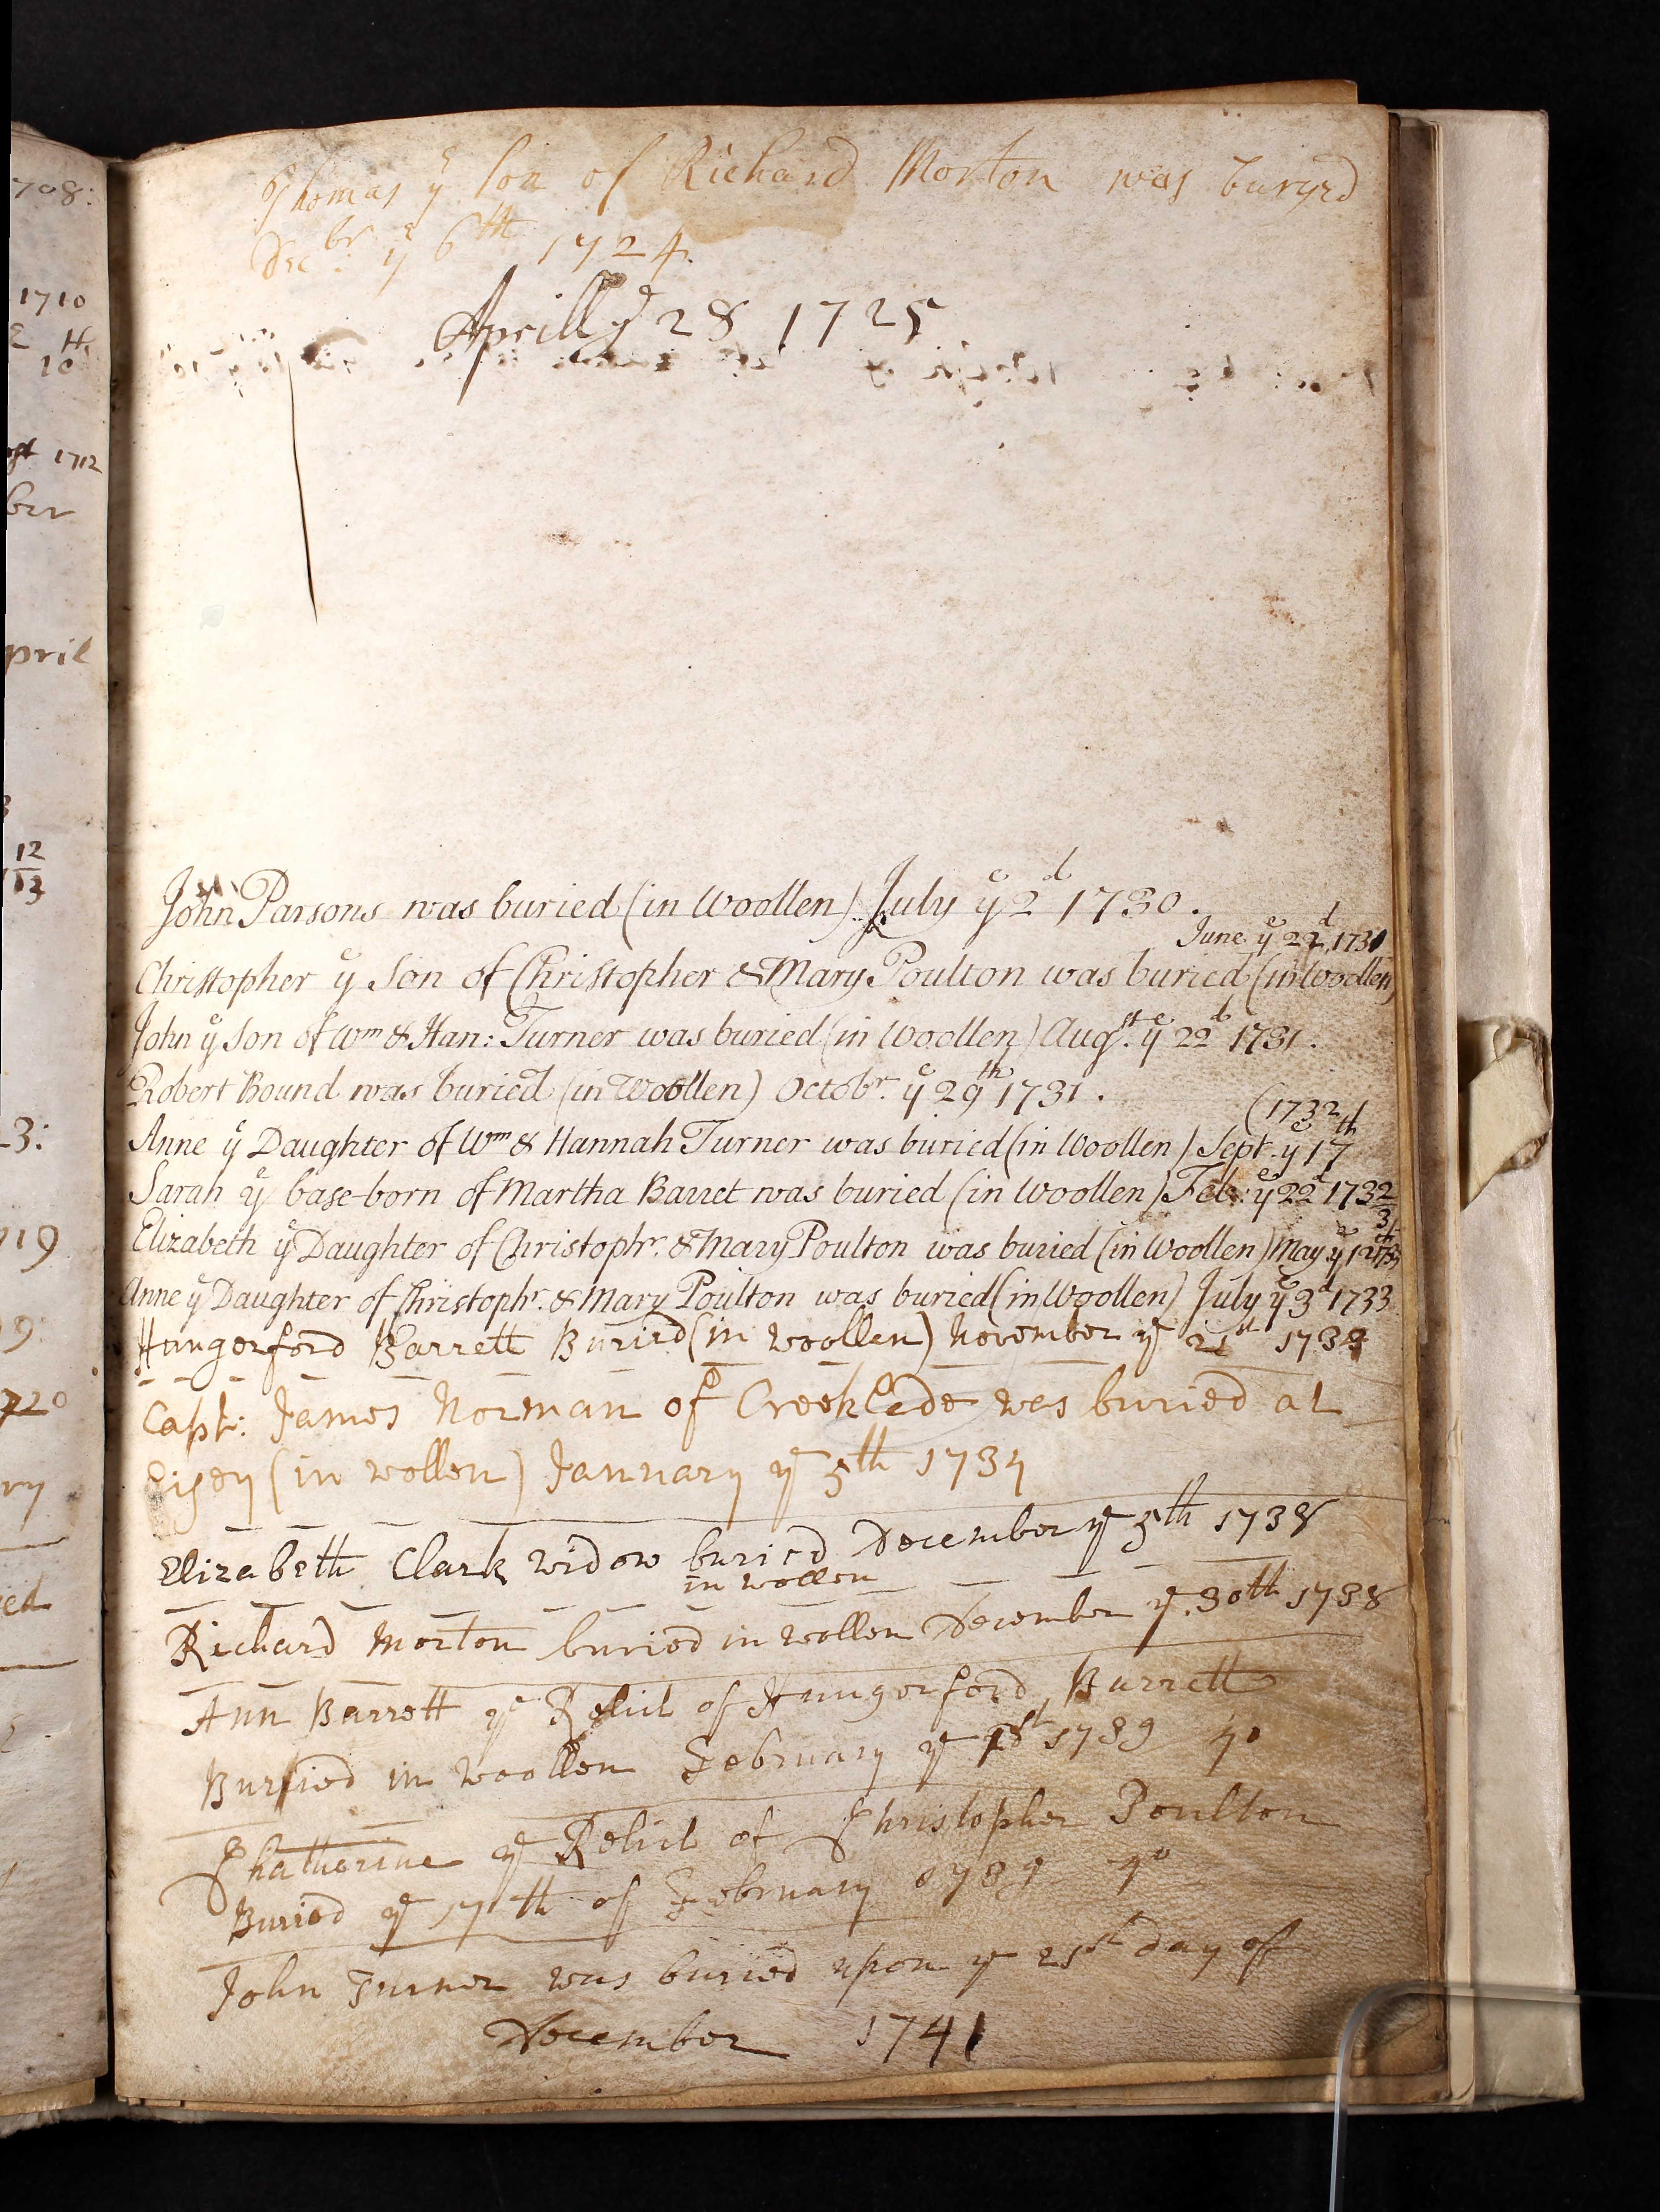 Thomas ye son of Richard Morton was buryed
Decbr: ye 6th 1724.
Aprill ye 28 1725
John Parsons was buried (in Woollen) July ye 2d 1730.
June ye 22d, 1731
Christopher ye Son of Christopher & Mary Poulton was buried (in Woollen)
John ye Son of Wm & Han: Turner was buried (in Woollen) Augst. ye 22d 1731.
Robert Bound was buried (in Woollen) Octobr. ye 29th 1731.
(1732
Anne ye Daughter of Wm & Hannah Turner was buried (in Woollen) Sept. ye 17th
Sarah ye base-born of Martha Barret was buried (in Woollen) Feb: ye 22d 1732/3
Elizabeth ye Daughter of Christophr. & Mary Poulton was buried (in Woollen) May ye
Anne ye Daughter of Christophr. & Mary Poulton was buried (in Woollen) July ye 3d 1733
Hungerford Barrett Buried (in woollen) November ye 21st
Capt: James Norman of Creeklade was buried at
Eisey (in wollen) January ye 5th 1734
Elizabeth Clark widow buried December ye 5th 1738
in wollen
Richard Morton buried in wollen December ye 30th 1738
Ann Barrett ye Relict of Hungerford Barrett
Buried in woollen February ye 1st 1739 40
Chatherine ye Relict of Christopher Poulton
Buried ye 17th of February 1739 40
John Turner was buried upon ye 21st day of
December 1741
708:
1710
H
10
1712
ber
pril
12
13
3:
19
9:
720
ry
ied